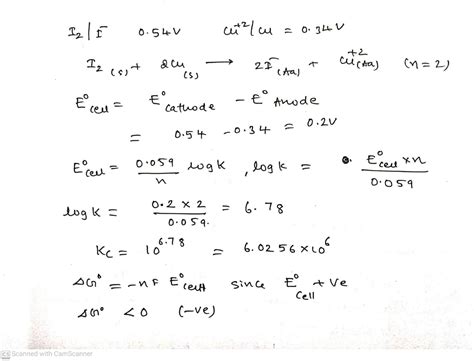 I₂/I⁻ 0.54V Cu⁺²/Cu = 0.34V
I₂(s) + 2Cu(s) ⟶ 2I⁻(Aq) + Cu⁺²(Aq) (n=2)
E°cell = E°cathode - E°Anode
= 0.54 - 0.34 = 0.2V
E°cell = 0.059/n log K , log K = E°cell × n / 0.059
log K = 0.2 × 2 / 0.059. = 6.78
Kc = 10^6.78 = 6.0256 × 10⁶
ΔG° = -nF E°cell since E°cell +ve
ΔG° < 0 (-ve)
CS Scanned with CamScanner